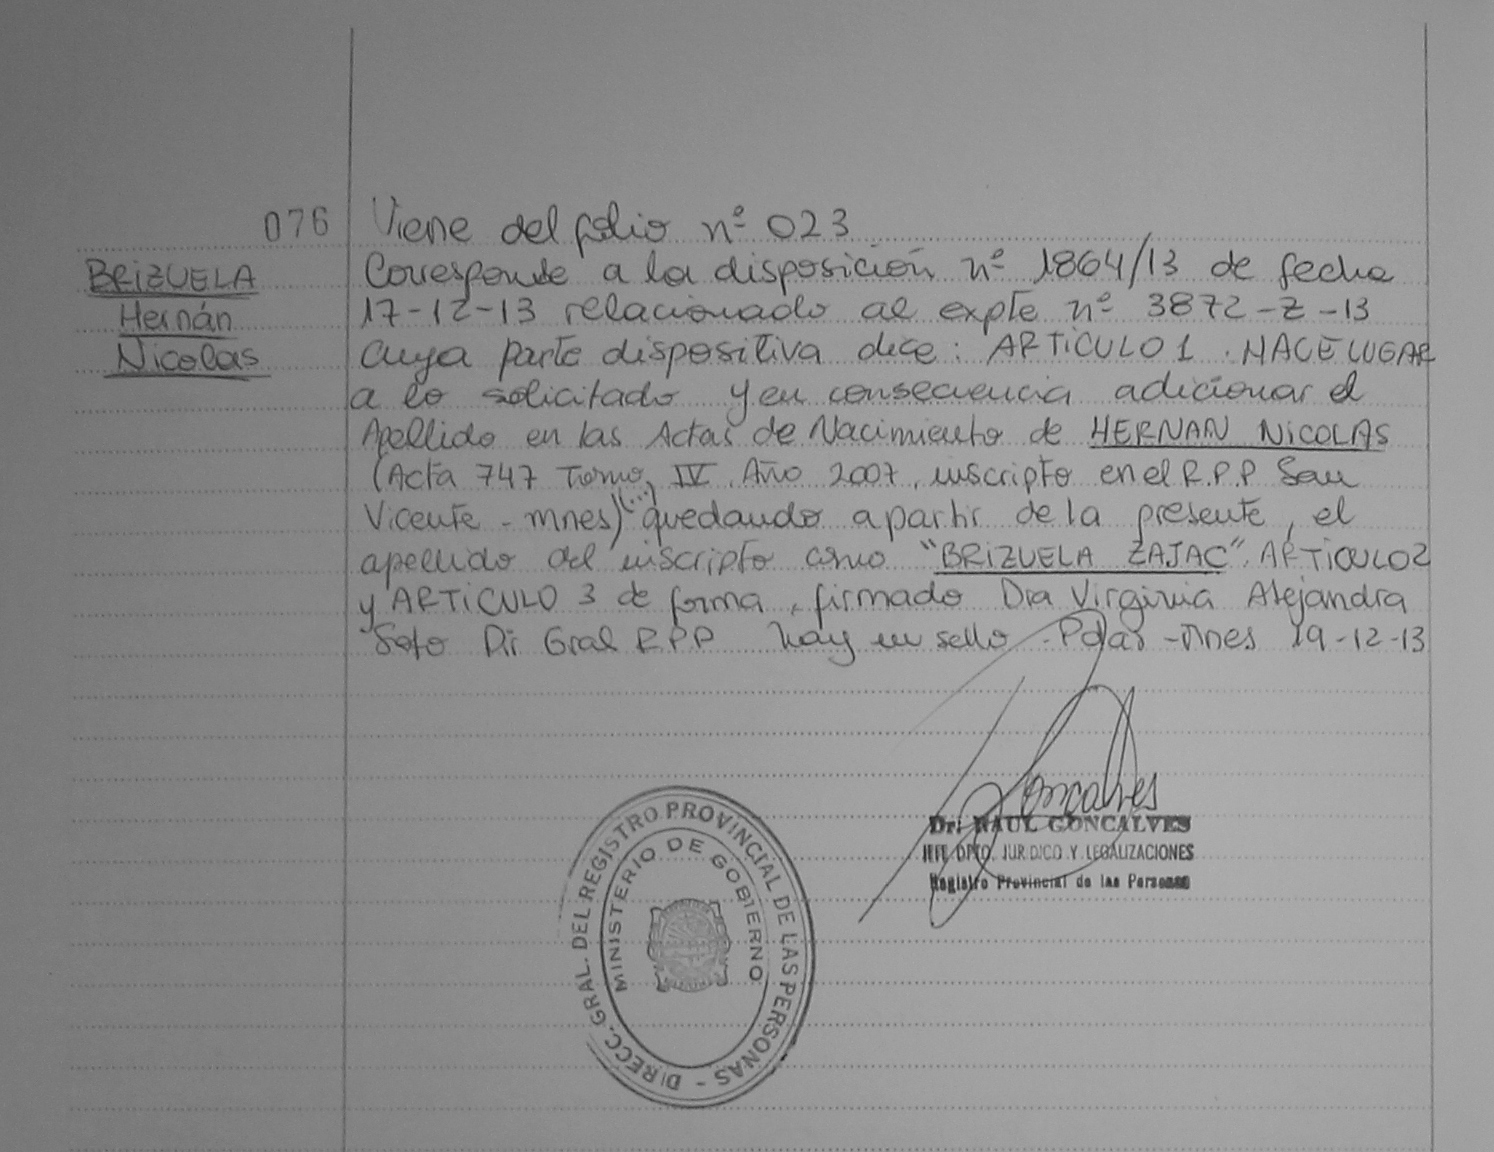 076
Viene del folio nº 023
BRIZUELA
Hernán
Nicolas
Corresponde a la disposición nº 1864/13 de fecha
17-12-13 relacionado al expte nº 3872-Z-13
cuya parte dispositiva dice: ARTICULO 1. HACE LUGAR
a lo solicitado y en consecuencia adicionar el
Apellido en las Actas de Nacimiento de HERNAN NICOLAS
(Acta 747 Tomo IV Año 2007, inscripto en el R.P.P San
Vicente - mnes) (...) quedando a partir de la presente, el
apellido del inscripto como "BRIZUELA ZAJAC". ARTICULO 2
y ARTICULO 3 de forma, firmado Dra Virginia Alejandra
Soto Dir Gral R.P.P hay un sello - Pdas - Mnes 19-12-13
Goncalves
Dr. RAUL GONCALVES
JEFE DPTO. JURIDICO Y LEGALIZACIONES
Registro Provincial de las Personas
DIRECC. GRAL. DEL REGISTRO PROVINCIAL DE LAS PERSONAS -
MINISTERIO DE GOBIERNO